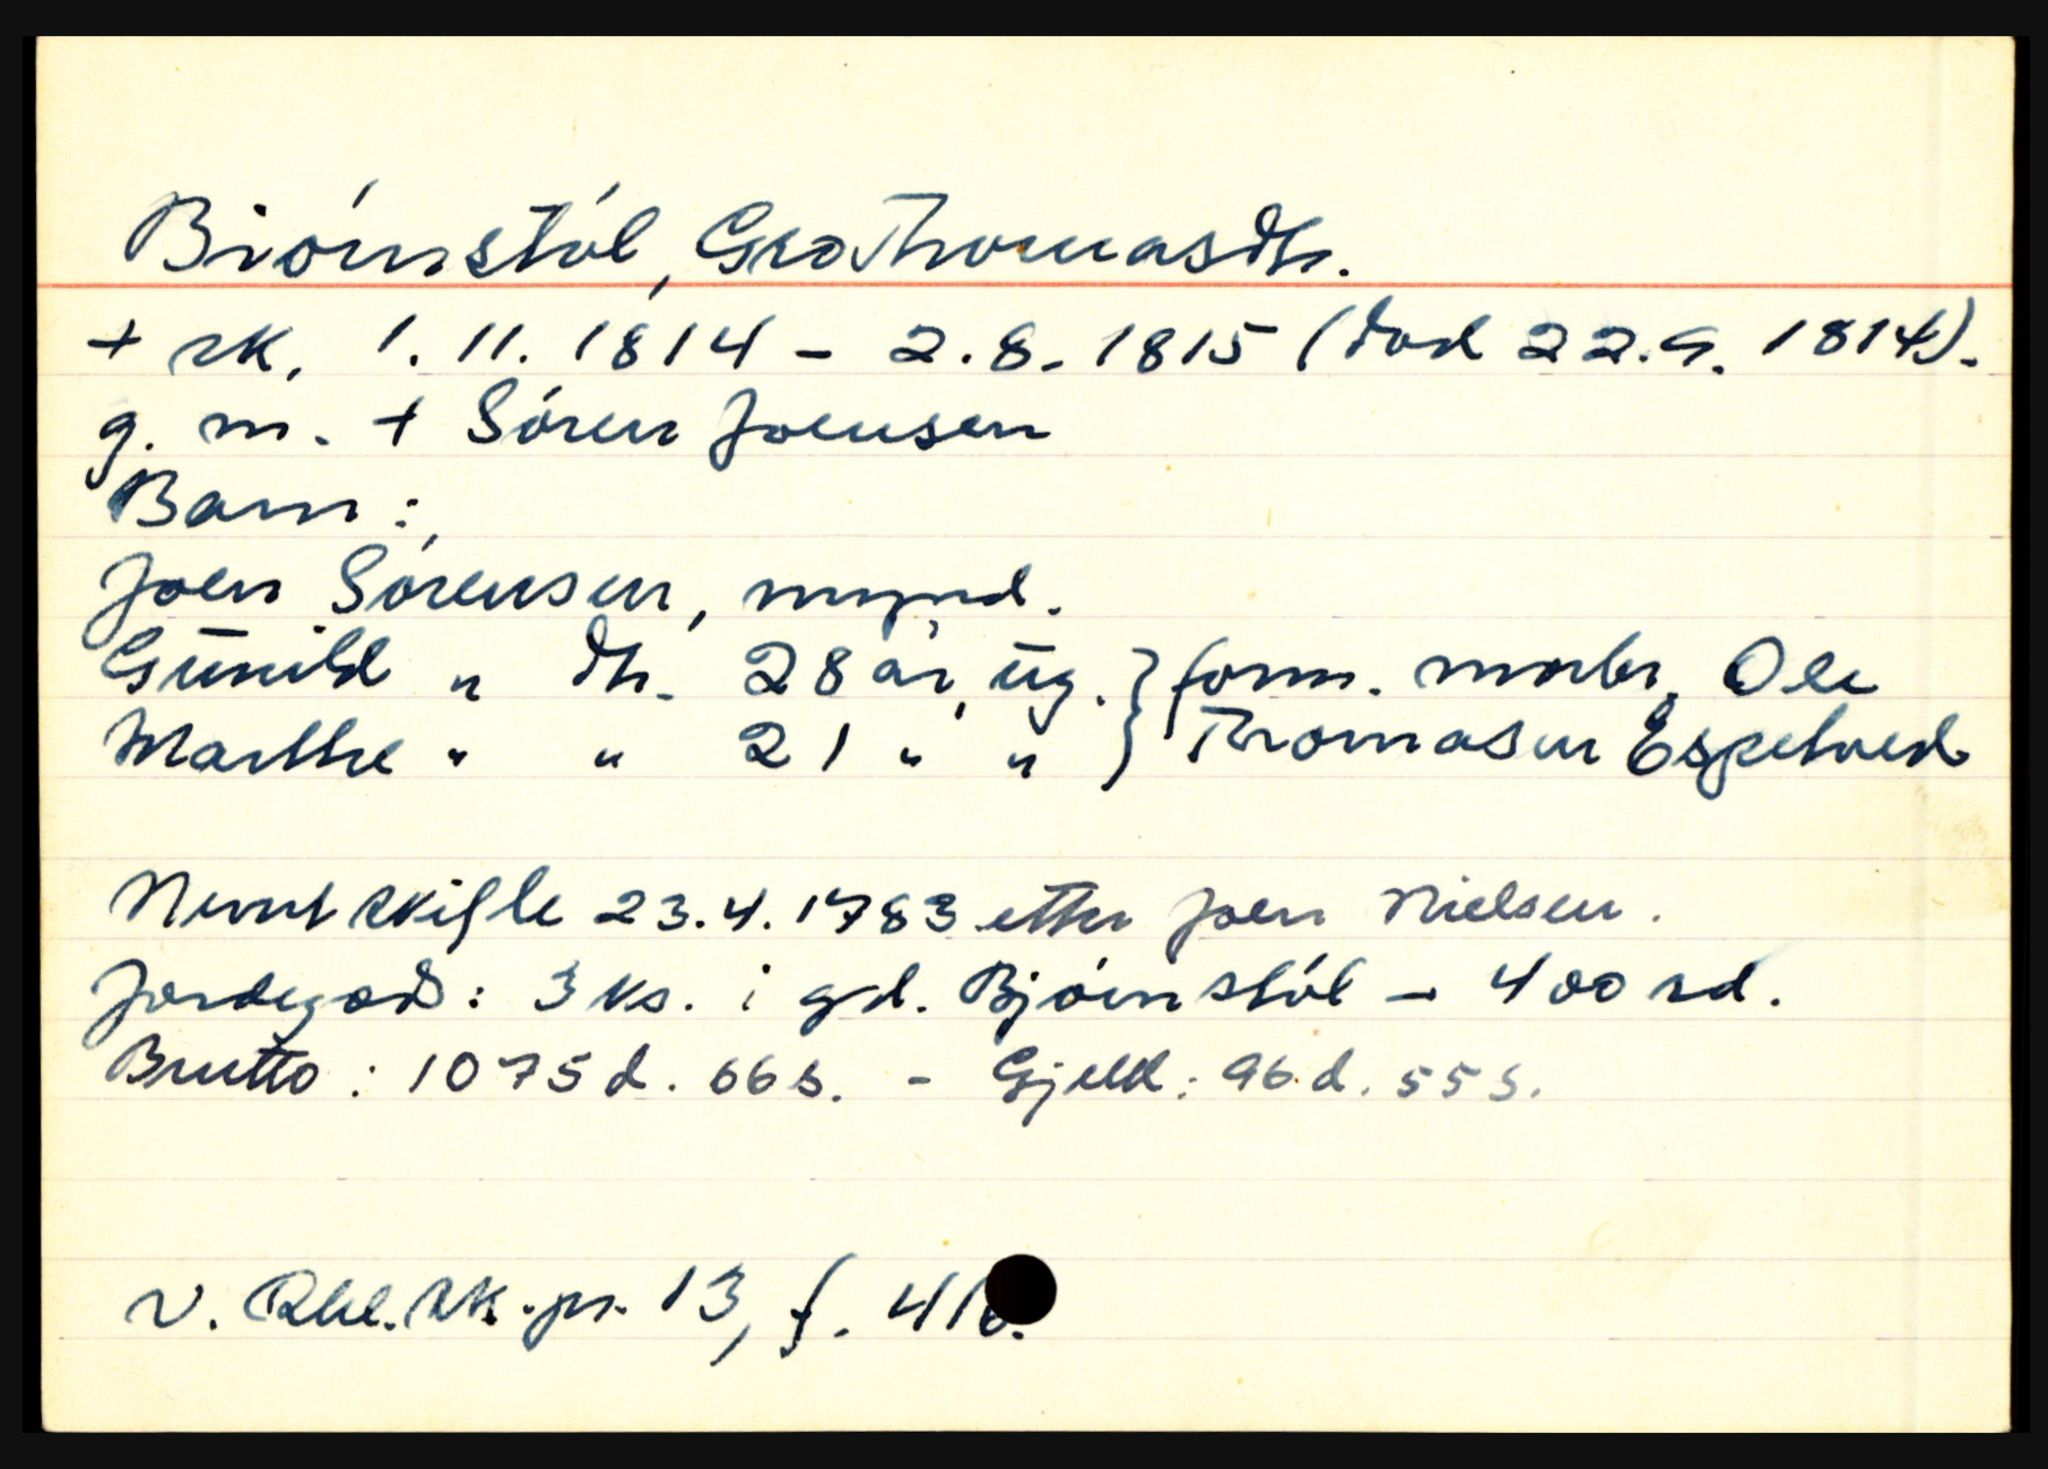 Biórnstól, Gro Thomasdtr.
+ sk. 1.11.1814 - 2.8.1815 (død 22.9.1814).
g. m. + Sóren Joensen
Barn:
Joen Sórensen, mynd.
Gunild " dtr. 28 år, ug. } form. morbr. Ole
Marthe " " 21 " " } Thomasen Espetved
Nevnt skifte 23.4.1783 etter Joen Nielsen.
Jordegods: 3 ks. i gd. Bjórnstól - 400 rd.
Brutto: 1075 d. 66 s. - Gjeld: 96 d. 55 s.
N. Rbl. sk. pr. 13, f.